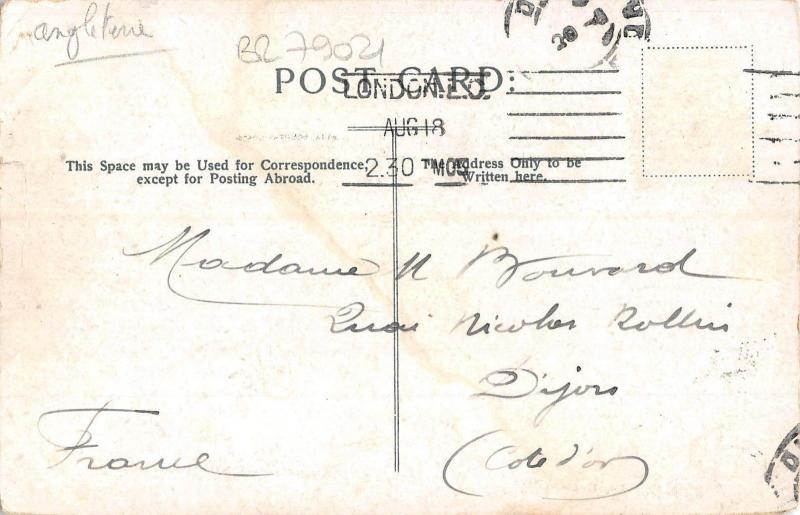 angleterre
BR 79021
POST CARD.
LONDON. E.C.
AUG 18
2.30 PM 05
This Space may be Used for Correspondence,
except for Posting Abroad.
The Address Only to be
Written here.
Madame N Bouvard
Quai Nicolas Rollin
Dijon
(Cote d'or)
France